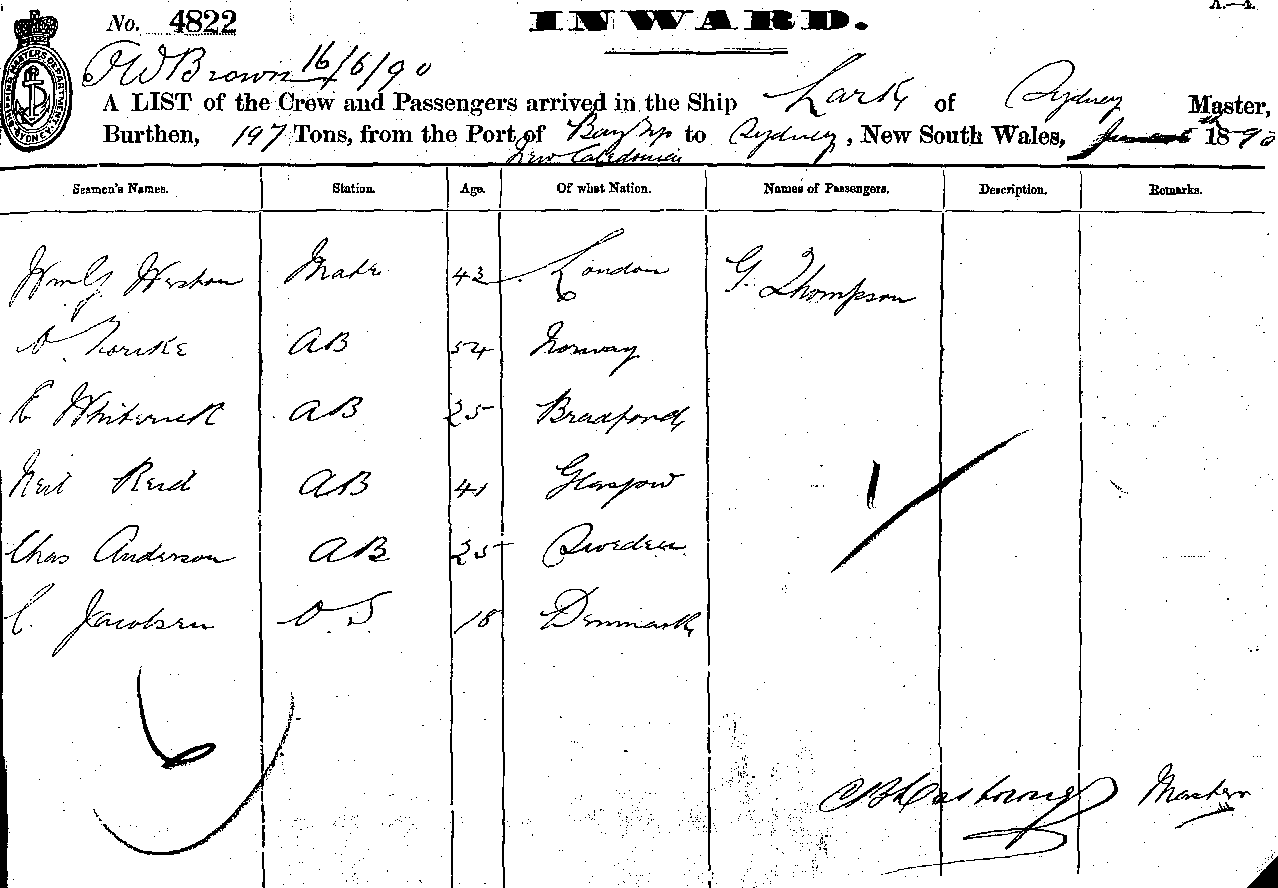 A.—4.
No. 4822 INWARD.
Brown 16/6/90
A LIST of the Crew and Passengers arrived in the Ship Lark of Sydney Master,
Burthen, 197 Tons, from the Port of Bay to Sydney, New South Wales, 1890
New Caledonia
Seamen's Names. Station. Age. Of what Nation. Names of Passengers. Description. Remarks.
Wm G Weston Mate 42 London G. Thompson
AB 54 Norway
E AB 25 Bradford
Neil Reid AB 41 Glasgow
1
Chas Anderson AB 25 Sweden
C. Jacobsen O.S 18 Denmark
6
Master